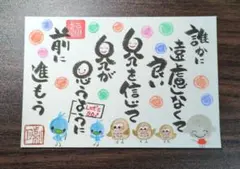 誰かに
遠慮なくて
良い
を信じて
が
思うように
前に
進もう
Let's GO♪